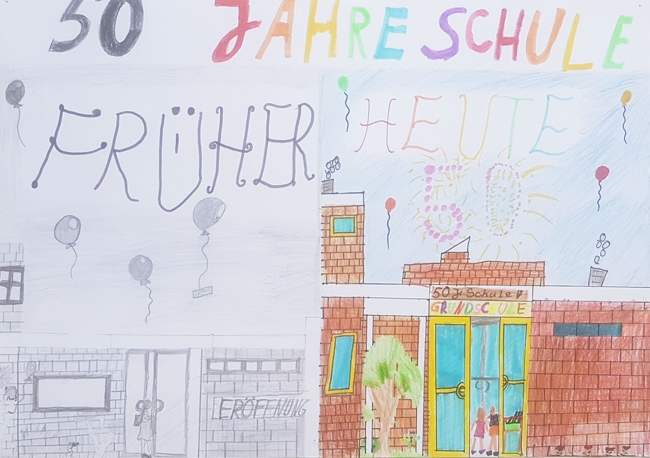 50 JAHRE SCHULE
FRÜHER
HEUTE
50
50 J Schule
GRUNDSCHULE
ERÖFFNUNG